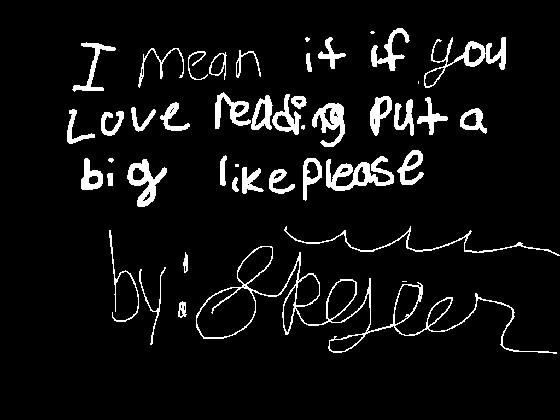 I mean it if you
Love reading put a
big like please
by: